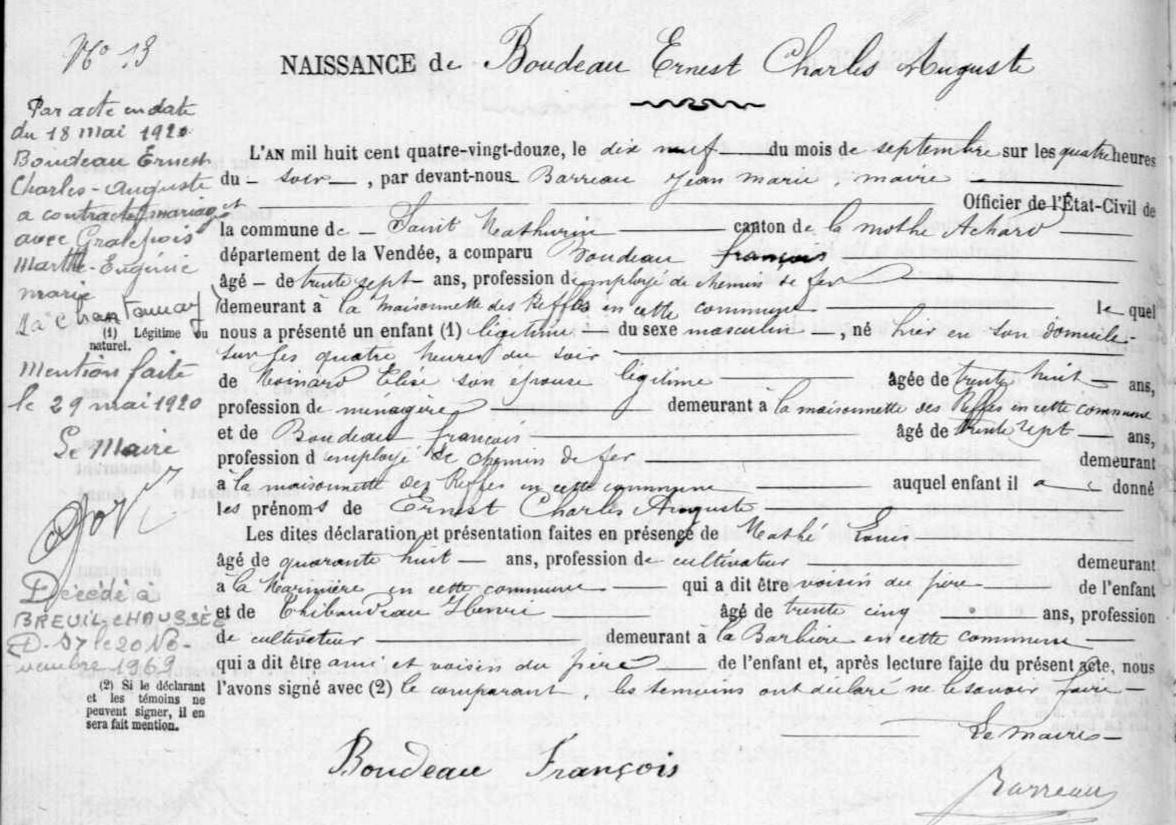 N° 13
NAISSANCE de Boudeau Ernest Charles Auguste
Par acte en date
du 18 mai 1920
Boudeau Ernest
Charles-Auguste
a contracté mariage
avec Gralepois
Marthe-Eugénie
marie
à Chantonnay
(1) Légitime ou
naturel.
Mention faite
le 29 mai 1920
Le Maire
Décédé à
BREUIL-CHAUSSÉE
D.S7 le 20 No-
vembre 1969
(2) Si le déclarant
et les témoins ne
peuvent signer, il en
sera fait mention.
L'AN mil huit cent quatre-vingt-douze, le dix neuf du mois de septembre sur les quatre heures
du soir, par devant-nous Barreau Jean Marie, maire
et Officier de l'État-Civil de
la commune de Saint Mathurin canton de la Mothe Achard
département de la Vendée, a comparu Boudeau françois
âgé de trente sept ans, profession d'employé de chemin de fer
demeurant à la maisonnette des Reffes en cette commune lequel
nous a présenté un enfant (1) légitime du sexe masculin, né hier en son domicile
sur les quatre heures du soir
de Moinard Elise son épouse légitime âgée de trente huit ans,
profession de ménagère demeurant à la maisonnette des Reffes en cette commune
et de Boudeau françois âgé de trente sept ans,
profession d'employé de chemin de fer demeurant
à la maisonnette des Reffes en cette commune auquel enfant il a donné
les prénoms de Ernest Charles Auguste
Les dites déclaration et présentation faites en présence de Mathé Louis
âgé de quarante huit ans, profession de cultivateur demeurant
à la Marinière en cette commune qui a dit être voisin du père de l'enfant
et de Thibaudeau Henri âgé de trente cinq ans, profession
de cultivateur demeurant à la Barbière en cette commune
qui a dit être ami et voisin du père de l'enfant et, après lecture faite du présent acte, nous
l'avons signé avec (2) le comparant, les témoins ont déclaré ne le savoir faire
Le maire
Boudeau François
Barreau